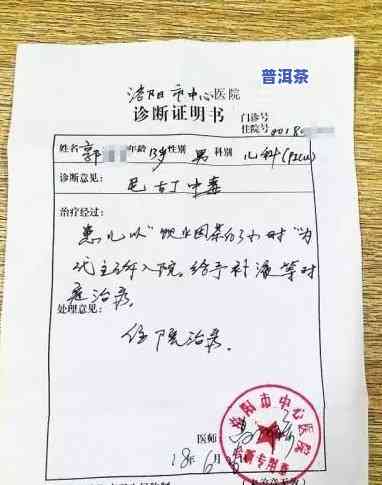 普洱茶
洛阳市中心医院
诊断证明书
门诊号
住院号
姓名 郭 年龄 13岁 性别 男 科别 儿科(PICU)
诊断意见：
尼古丁中毒
治疗经过：
患儿以"饮业因茶后3小时"为
代主诉入院。给予补液等对
症治疗。
处理意见：
住院治疗。
医师：
18年6月
洛阳市中心医院
诊断专用章